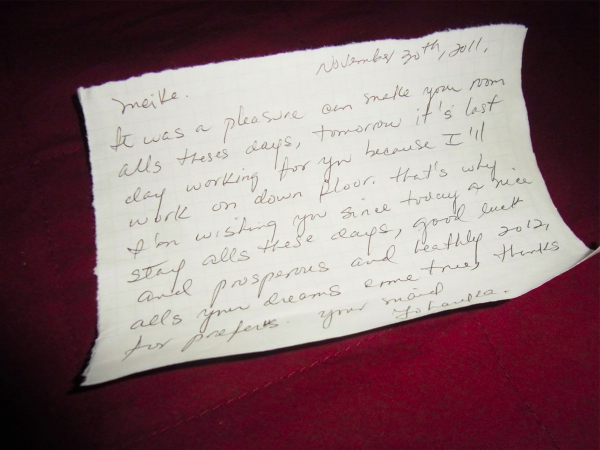 November 30th, 2011,
Meike.
It was a pleasure can make your room
alls theses days, tomorrow it's last
day working for you because I'll
work on down floor. that's why
I'm wishing you since today a nice
stay alls these days, good luck
and prosperous and heathly 2012,
alls your dreams come true, thanks
for prefers. your maid